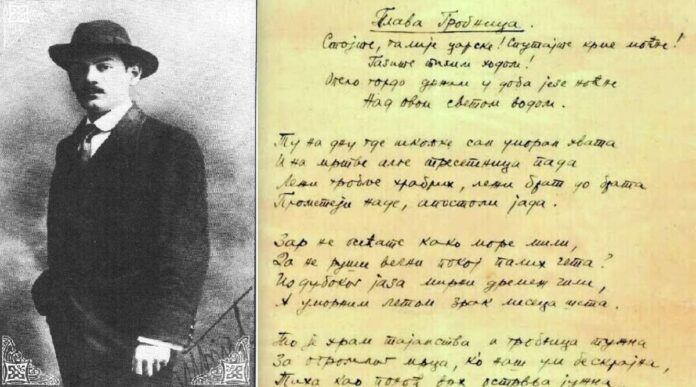 Плава Гробница.
Стојте, галије царске! Спутајте крме моћне!
Газите тихим ходом!
Опело гордо држим у доба језе ноћне
Над овом светом водом.
Ту на дну где шкољке сан уморан хвата
И на мртве алге тресетница пада
Лежи гробље храбрих, лежи брат до брата
Прометеји наде, апостоли јада.
Зар не осећате како море мили,
Да не руши вечни покој палих чета?
Из дубоког јаза мирни дремеж чили,
А уморним летом зрак месеца шета.
То је храм тајанства и гробница тужна
За огромног мрца, ко наш ум бескрајна,
Тиха као поноћ врх острвља јужна